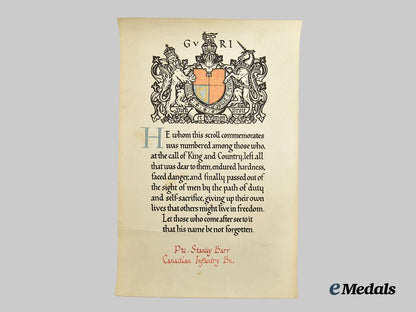 GVRI
HE whom this scroll commemorates
was numbered among those who,
at the call of King and Country, left all
that was dear to them, endured hardness,
faced danger, and finally passed out of
the sight of men by the path of duty
and self-sacrifice, giving up their own
lives that others might live in freedom.
Let those who come after see to it
that his name be not forgotten.
Pte. Stanley Barr
Canadian Infantry Bn.
eMedals